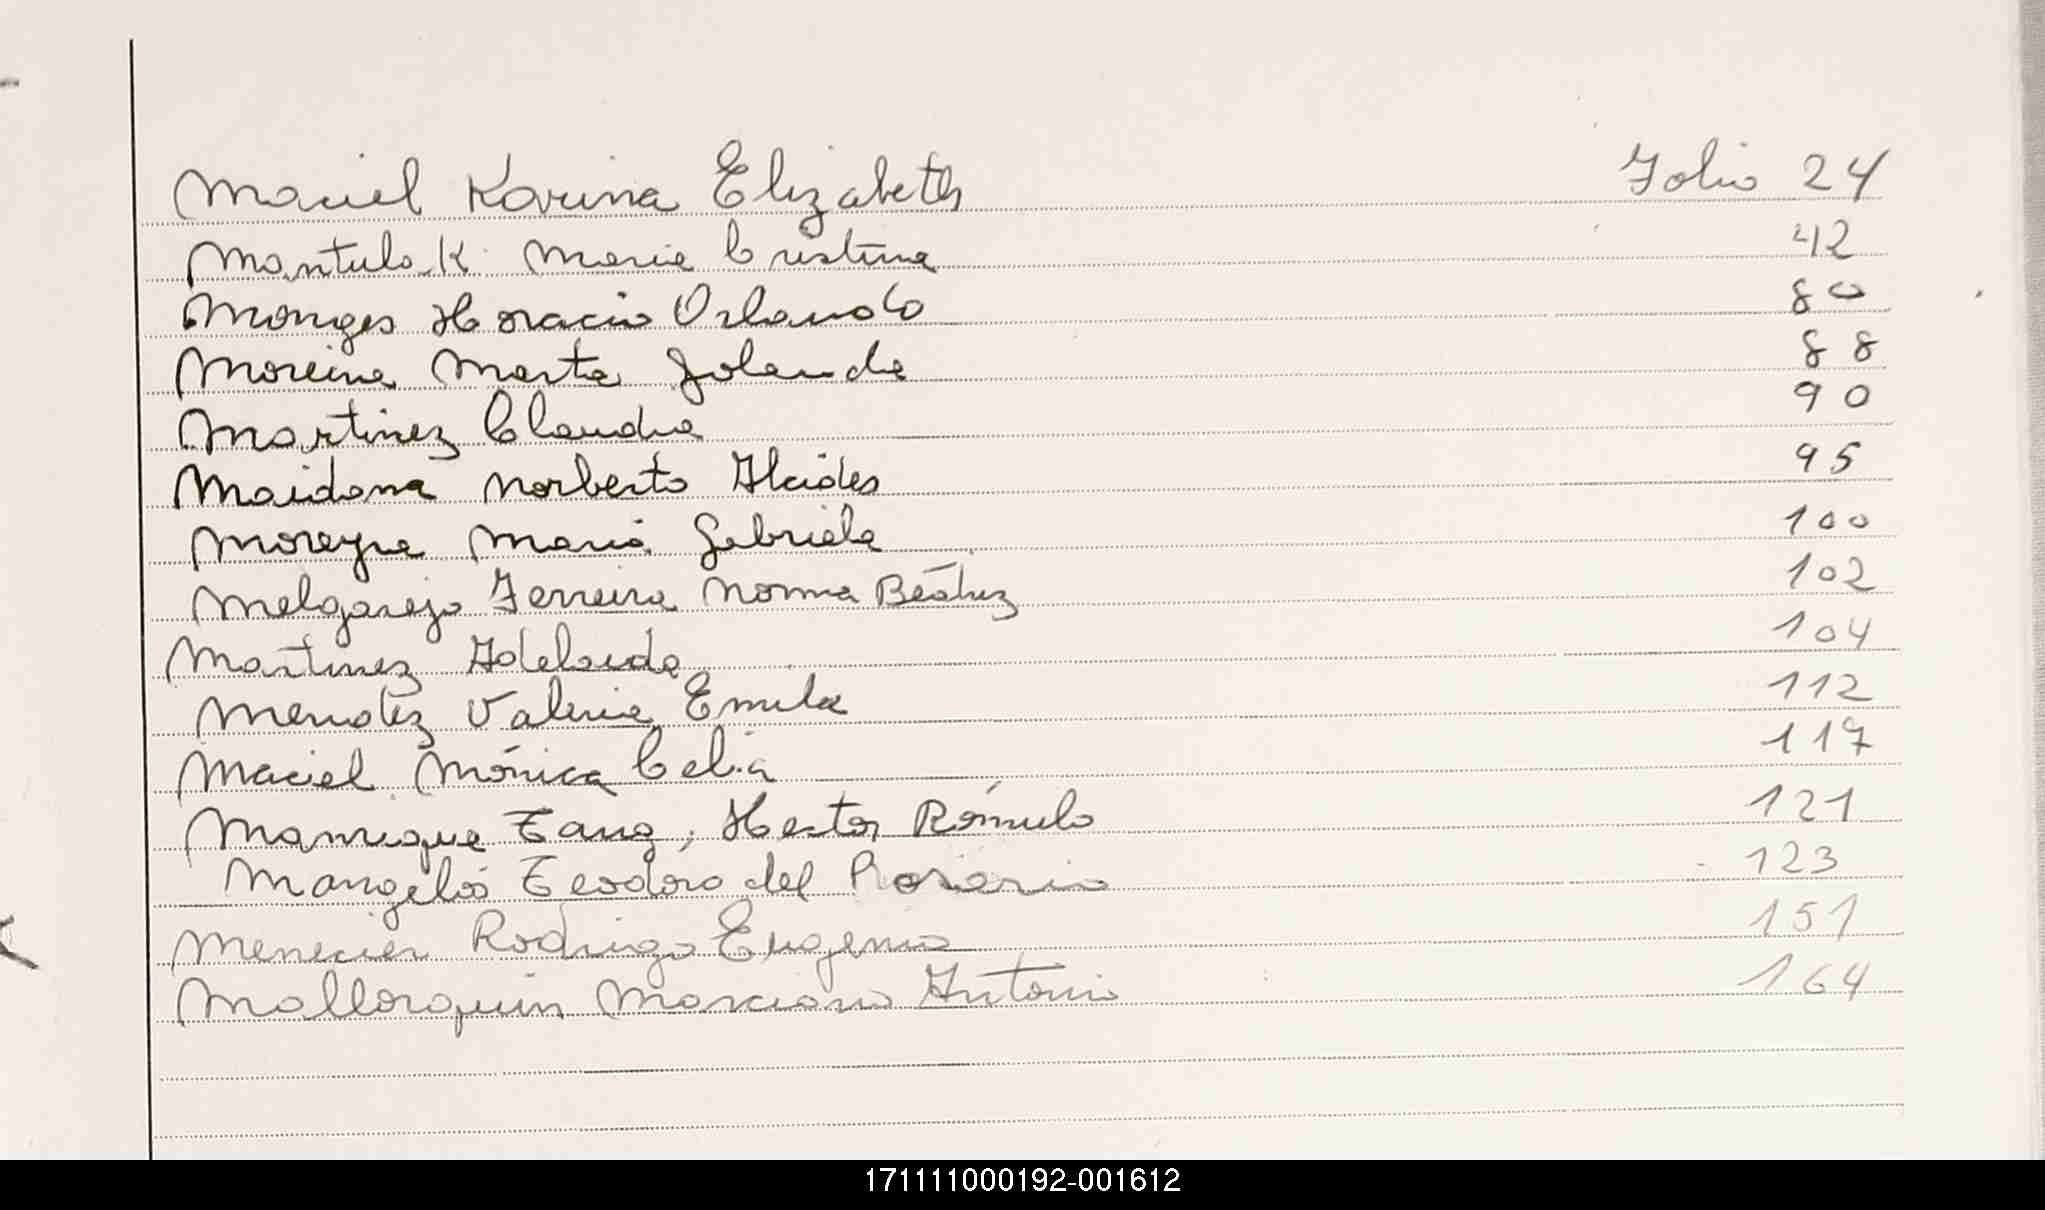 Maciel Karina Elizabeth Folio 24
Mantulak Maria Cristina 42
Monges Horacio Orlando 80
Moreira Marta Jolanda 88
Martinez Claudia 90
Maidana Norberto Alcides 95
Moreyra Maria Gabriela 100
Melgarejo Ferreira Norma Beátriz 102
Martinez Adelaida 104
Mendez Valeria Emilia 112
Maciel Mónica Celia 117
Manrique Tang, Hector Rómulo 121
Mangeló Teodoro del Rosario 123
Menecier Rodrigo Eugenio 151
Mallorquin Marciano Antonio 164
171111000192-001612